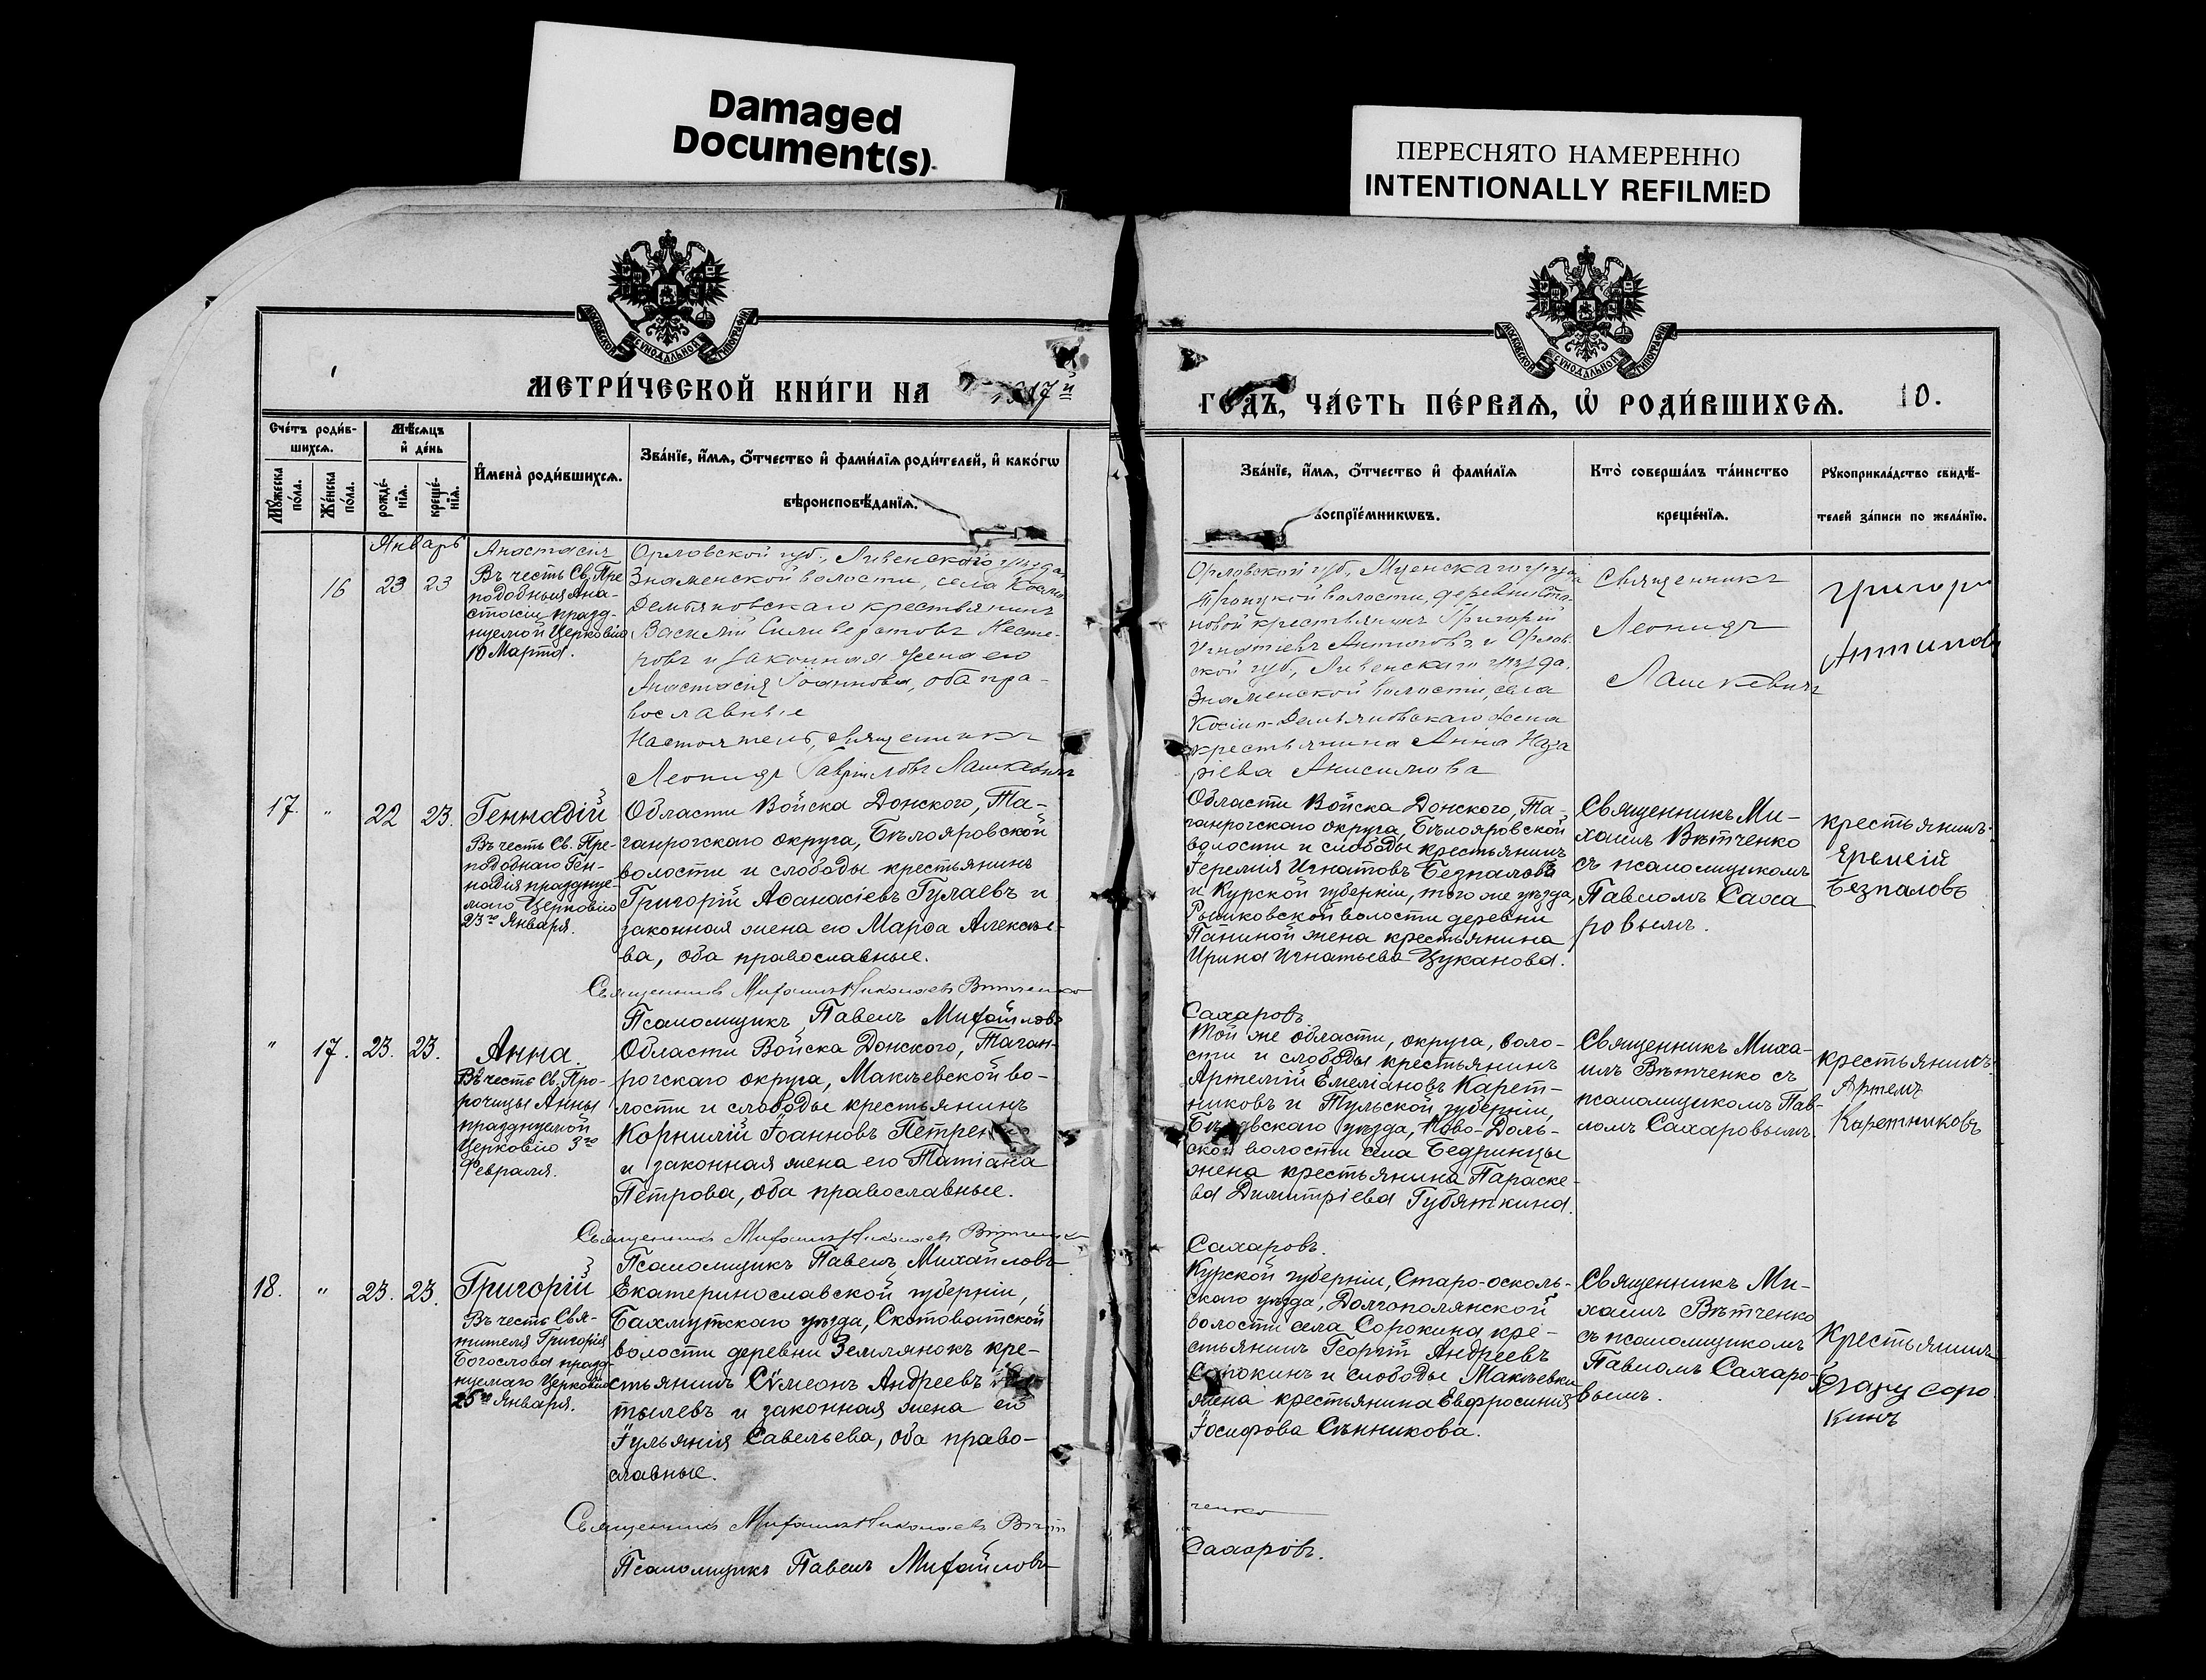 Damaged
Document(s)
ПЕРЕСНЯТО НАМЕРЕННО
INTENTIONALLY REFILMED
МОСКОВСКОЙ СУНОДАЛЬНОЙ ТИПОГРАФІИ
МОСКОВСКОЙ СУНОДАЛЬНОЙ ТИПОГРАФІИ
МЕТРИ́ЧЕСКОЙ КНИ́ГИ НА 1917й
ГОДЪ, ЧА́СТЬ ПЕ́РВАѦ, Ѡ҆ РОДИ́ВШИХСѦ. 10.
Сче́тъ роди́в-
шихсѧ.
Мꙋ́жеска по́ла.
Же́нска по́ла.
Мѣ́сѧцъ
и҆ де́нь
рожде́-нїѧ.
креще́-нїѧ.
И҆мена̀ роди́вшихсѧ.
Зва́нїе, и҆́мѧ, ѻ҆́тчество и҆ фами́лїѧ роди́телей, и҆ како́гѡ
вѣроисповѣ́данїѧ.
Зва́нїе, и҆́мѧ, ѻ҆́тчество и҆ фами́лїѧ
воспрїе́мникѡвъ.
Кто̀ соверша́лъ та́инство
креще́нїѧ.
Рꙋкоприкла́дство свидѣ́-
телей за́писи по жела́нїю.
Январь
16 23 23
Анастасія
Въ честь Св. Пре
подобныя Ана-
стасіи празд-
нуемой Церковію
10 Марта.
Орловской губ., Ливенскаго уѣзда,
Знаменской волости, села Косьмо
Демьяновскаго крестьянинъ
Василій Силиверстовъ Несте-
ровъ и законная жена его
Анастасія Іоаннова, оба пра-
вославные
Настоятель, священникъ
Леонидъ Гавріиловъ Лашкевичъ
Орловской губ., Мценскаго уѣзда
Троицкой волости, деревни
новой крестьянинъ Григорій
Игнатіевъ Антиповъ и Орлов-
ской губ., Ливенскаго уѣзда,
Знаменской волости, села
Косьмо-Демьяновскаго жена
крестьянина Анна Наза
ріева Анисимова
Священникъ
Леонидъ
Лашкевичъ
Григорi
Антиповъ
17. " 22 23.
Геннадій
Въ честь Св. Пре-
подобнаго Ген-
надія праздну-
маго Церковію
23го Января.
Области Войска Донского, Та-
ганрогскаго округа, Бѣлояровской
волости и слободы крестьянинъ
Григорій Аѳанасіевъ Гулаевъ и
законная жена его Марѳа Алексѣе-
ва, оба православные.
Священникъ Михаилъ Николаевъ Вѣтченко
Псаломщикъ Павелъ Михайловъ
Области Войска Донского, Та-
ганрогскаго округа, Бѣлояровской
волости и слободы крестьянинъ
Іеремія Игнатовъ Безпаловъ
и Курской губерніи, того же уѣзда,
Рышковской волости деревни
Паниной жена крестьянина
Ирина Игнатьева Цуканова.
Сахаровъ
Священникъ Ми-
хаилъ Вѣтченко
съ псаломщикомъ
Павломъ Саха
ровымъ.
крестьянинъ
Яремій
Безпаловъ
" 17. 23. 23.
Анна.
Въ честь Св. Про-
рочицы Анны
празднуемой
Церковію 3го
Февраля.
Области Войска Донского, Таган-
рогскаго округа, Макѣевской во-
лости и слободы крестьянинъ
Корнилій Іоанновъ Петренко
и законная жена его Татіана
Петрова, оба православные.
Священникъ Михаилъ Николаевъ Вѣтченко
Псаломщикъ Павелъ Михайловъ
Той же области, округа, воло-
сти и слободы крестьянинъ
Артемій Емеліановъ Карет-
никовъ и Тульской губерніи,
уѣзда, Ново-Доль-
ской волости села Бедринцы
жена крестьянина Параске-
ва Димитріева Губяткина.
Сахаровъ.
Священникъ Миха-
илъ Вѣтченко съ
псаломщикомъ Пав-
ломъ Сахаровымъ.
крестьянинъ
Артемъ
Каретниковъ
18. " 23. 23.
Григорій
Въ честь Свя-
тителя Григорія
Богослова празд-
нуемаго Церковію
25го Января.
Екатеринославской губерніи,
Бахмутскаго уѣзда, Скотоватской
волости деревни Землянокъ кре-
стьянинъ Сѵмеонъ Андреевъ
тылевъ и законная жена его
Іульянія Савельева, оба право-
славные.
Священникъ Михаилъ Николаевъ Вѣт
Псаломщикъ Павелъ Михайловъ
Курской губерніи, Старо-осколь-
скаго уѣзда, Долгополянской
волости села Сорокина кре-
стьянинъ Георгій Андреевъ
Сорокинъ и слободы Макѣевки
жена крестьянина Евфросинія
Іосифова Сѣнникова.
ченко
Сахаровъ.
Священникъ Ми-
хаилъ Вѣтченко
съ псаломщикомъ
Павломъ Сахаро-
вымъ.
Крестьянинъ
Соро
кинъ